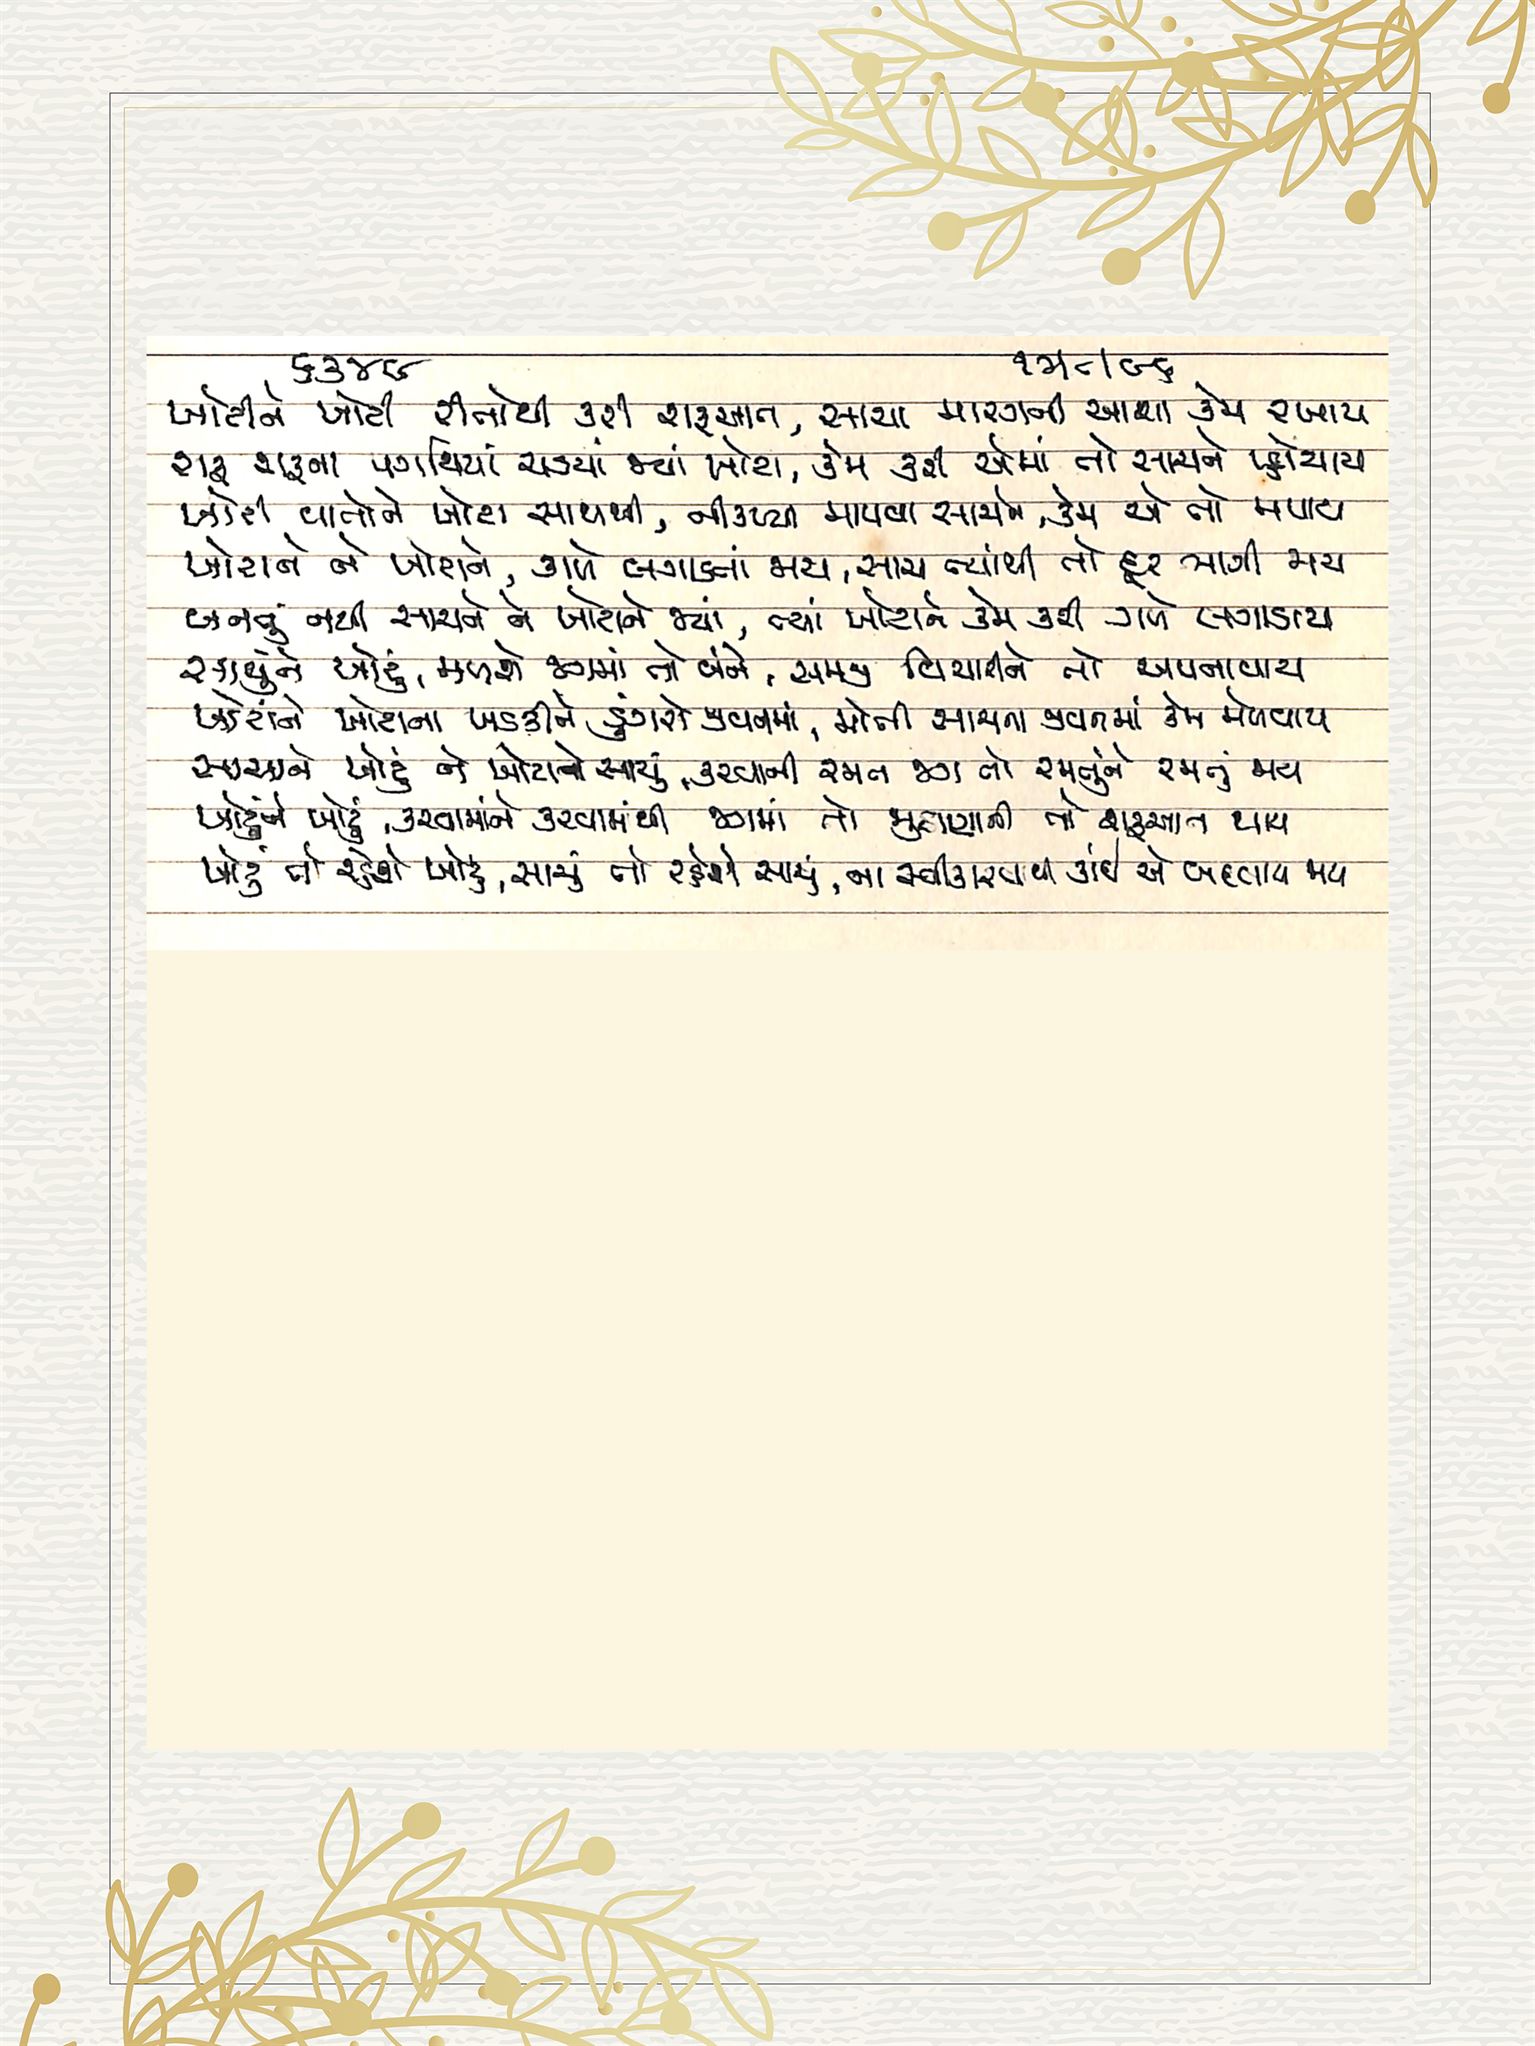 ૬૩૪૯
ખોટીને ખોટી રીતોથી કરી શરૂઆત, સાચા મારગની આશા કેમ રખાય
શરૂ શરૂના પગથિયાં ચડયાં જ્યાં ખોટા, કેમ કરી એમાં તો સાચને પ્હોંચાય
ખોટી વાતોને ખોટા સાથથી, નીકળ્યા માપવા સાચને, કેમ એ તો મપાય
ખોટાને ને ખોટાને, ગળે લગાડતાં જાય, સાચ ત્યાંથી તો દૂર ભાગી જાય
બનતું નથી સાચને ને ખોટાને જ્યાં, ત્યાં ખોટાને કેમ કરી ગળે લગાડાય
સાચુંને ખોટું, મળશે જગમાં તો બંને, સમજી વિચારીને તો અપનાવાય
ખોટાંને ખોટાના ખડકીને ડુંગરો જીવનમાં, મોતી સાચના જીવનમાં કેમ મેળવાય
સાચાને ખોટું ને ખોટાને સાચું, કરવાની રમત જગ તો રમતુંને રમતું જાય
ખોટુંને ખોટું, કરવામાંને કરવામાંથી જગમાં તો જુઠાણાની તો શરૂઆત થાય
ખોટું તો રહેશે ખોટું, સાચું તો રહેશે સાચું, ના સ્વીકારવાથી કાંઈ એ બદલાય જાય